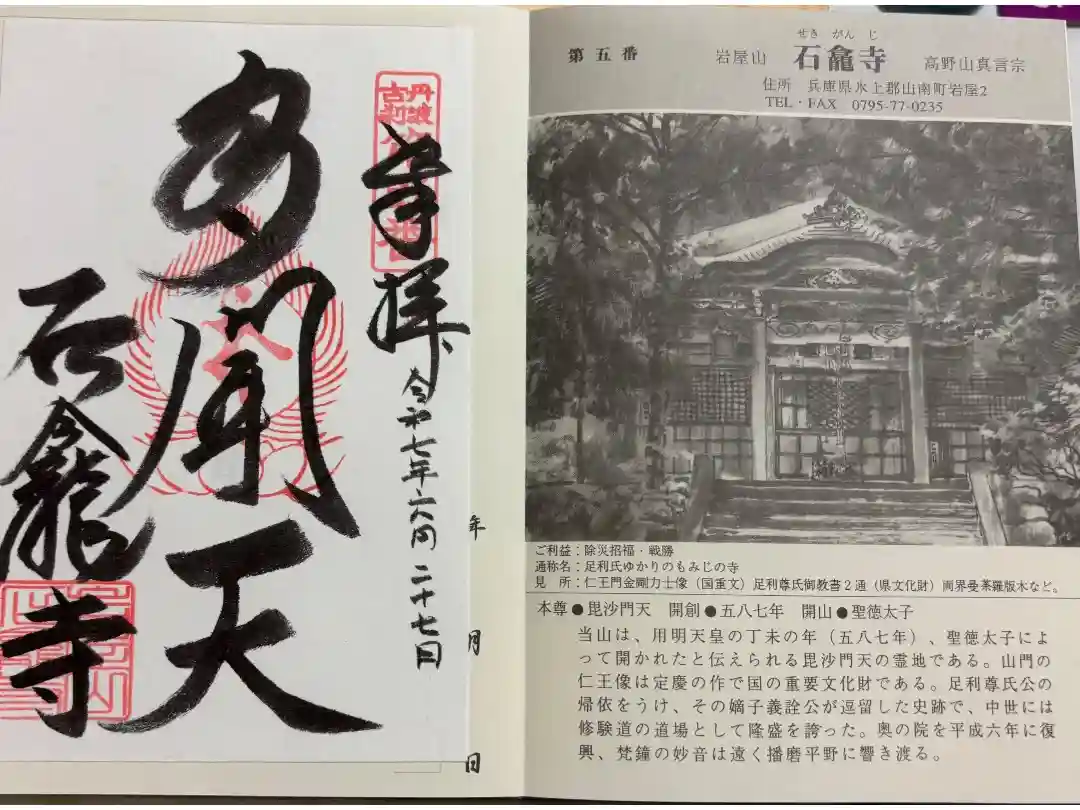 奉拝
丹波
古刹
令和七年六月二十七日
多聞天
石龕寺
年
月
日
第五番
岩屋山
せきがんじ
石龕寺
高野山真言宗
住所 兵庫県氷上郡山南町岩屋2
TEL・FAX 0795-77-0235
ご利益：除災招福・戦勝
通称名：足利氏ゆかりのもみじの寺
見　所：仁王門金剛力士像（国重文）足利尊氏御教書２通（県文化財）両界曼荼羅版木など。
本尊●毘沙門天　開創●五八七年　開山●聖徳太子
当山は、用明天皇の丁未の年（五八七年）、聖徳太子によ
って開かれたと伝えられる毘沙門天の霊地である。山門の
仁王像は定慶の作で国の重要文化財である。足利尊氏公の
帰依をうけ、その嫡子義詮公が逗留した史跡で、中世には
修験道の道場として隆盛を誇った。奥の院を平成六年に復
興、梵鐘の妙音は遠く播磨平野に響き渡る。